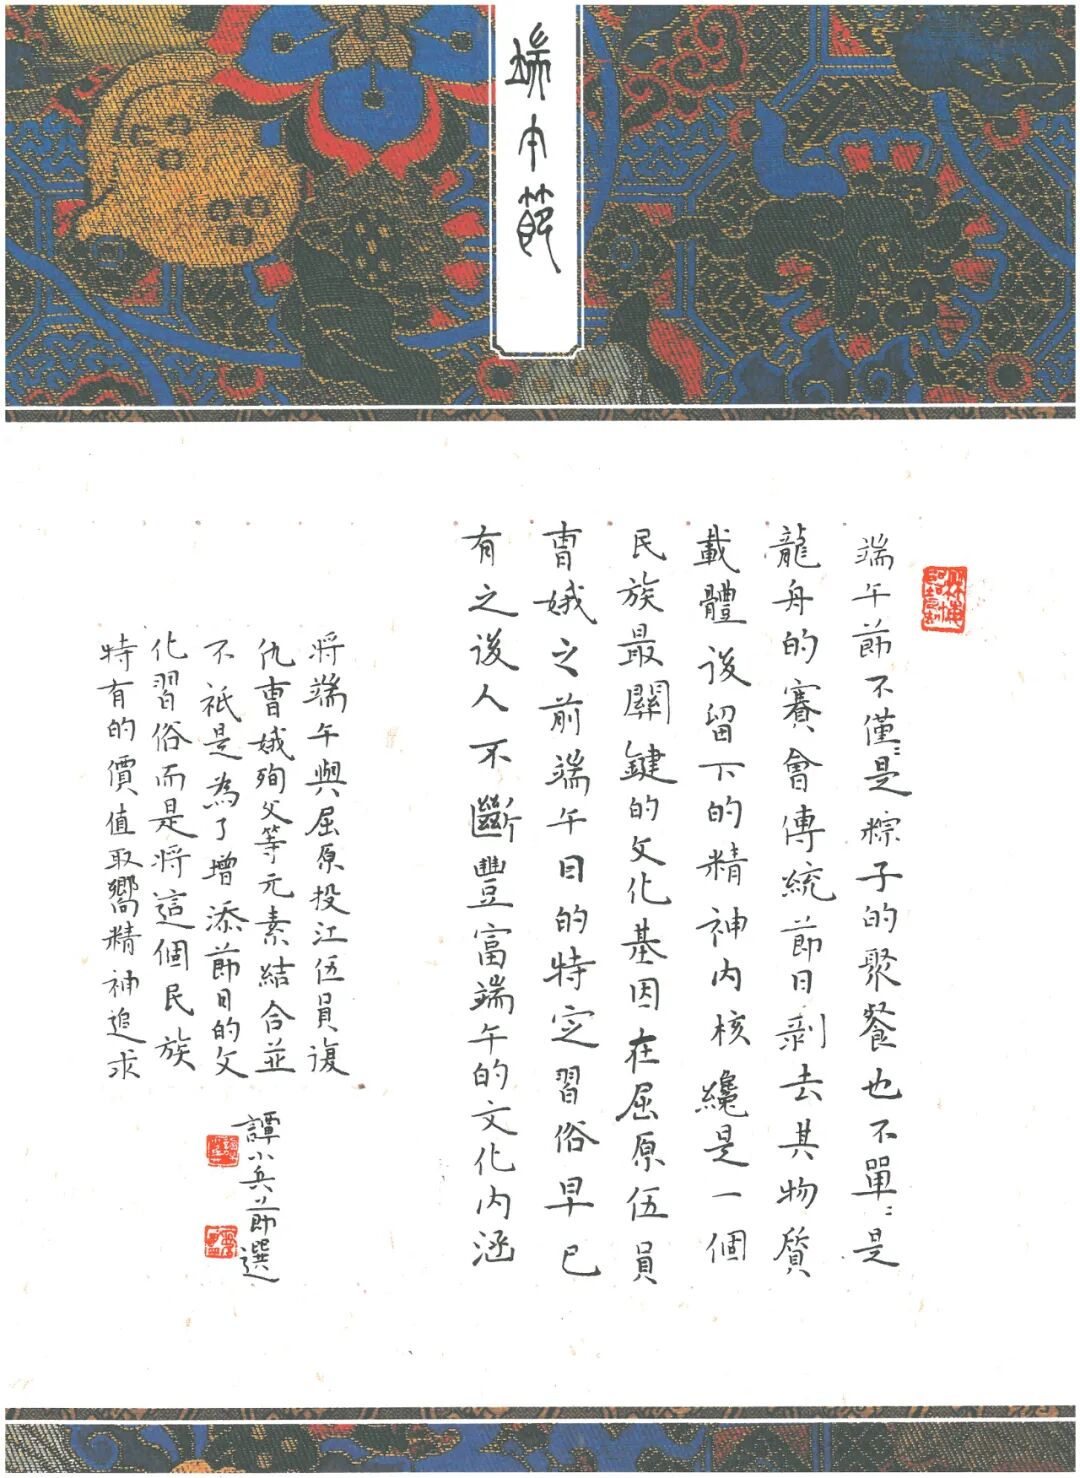 端午節
端午節不僅僅是粽子的聚餐也不單單是
龍舟的賽會傳統節日剥去其物质
載體後留下的精神内核纔是一個
民族最關鍵的文化基因在屈原伍員
曹娥之前端午日的特定習俗早已
有之後人不斷豐富端午的文化内涵
将端午與屈原投江伍員復
仇曹娥殉父等元素結合並
不祇是為了增添節日的文
化習俗而是将這個民族
特有的價值取嚮精神追求
譚小兵節選